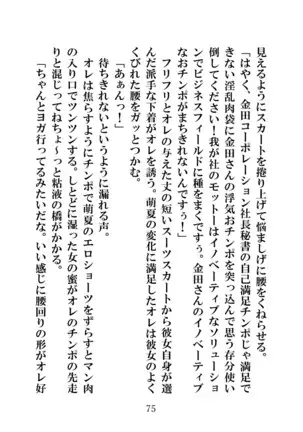 見えるようにスカートを捲り上げて悩ましげに腰をくねらせる。
「はやく、金田コーポレーション社長秘書の自己満足チンポじゃ満足で
きない淫乱肉袋に金田さんの浮気おチンポを突っ込んで思う存分使い
倒してください！我が社のモットーはイノベーティブなソリューショ
ンでビジネスフィールドに種をまくですぅ。金田さんのイノベーティブ
なおチンポがまちきれないんですぅ！」
フリフリとオレの与えた丈の短いスーツスカートから彼女自身が選
んだ派手な下着がオレを誘う。萌夏の変化に満足したオレは彼女のよく
くびれた腰をガッとつかむ。
「あぁんっ！」
待ちきれないというように漏れる声。
オレは焦らすようにチンポで萌夏のエロショーツをずらすとマン肉
の入り口でツンツンする。しとどに湿った女の蜜がオレのチンポの先走
りと混じってねちょーっと粘液の橋がかかる。
「ちゃんとヨガ行ってるみたいだな。いい感じに腰回りの形がオレ好
75